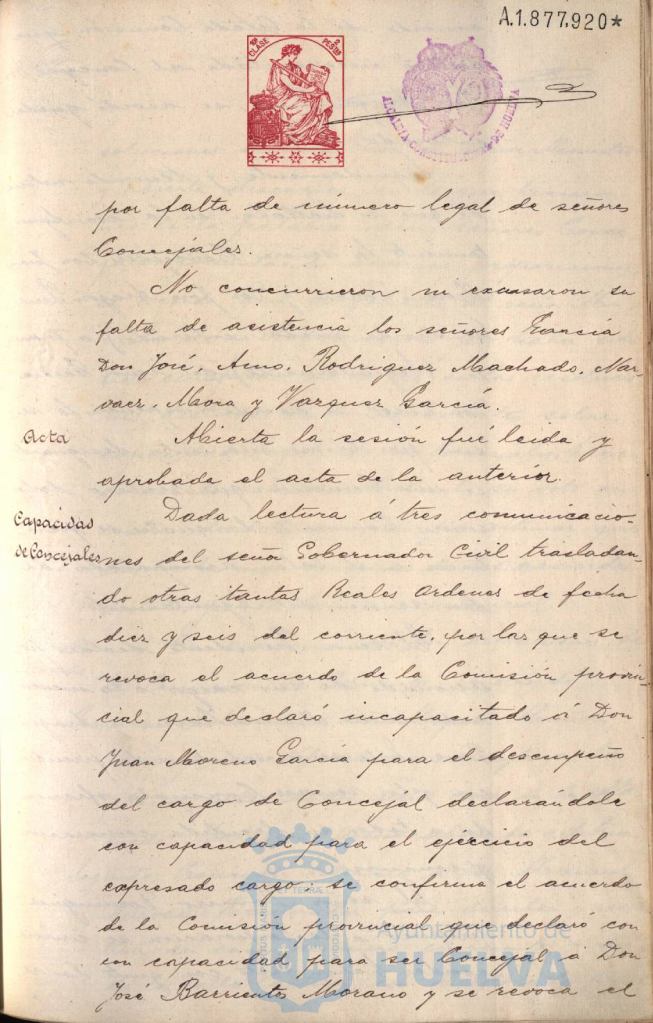 A.1.877.920*
1ª CLASE 2 PESTAS
ALCALDIA CONSTITUCIONAL DE HUELVA
por falta de número legal de señores
Concejales.
No concurrieron ni excusaron su
falta de asistencia los señores García
Don José, Amo, Rodriguez Machado, Nar-
vaez, Mora y Vazquez García.
Acta
Abierta la sesión fué leida y
aprobada el acta de la anterior.
Capacidad
de Concejales
Dada lectura á tres comunicacio-
nes del señor Gobernador Civil trasladan-
do otras tantas Reales ordenes de fecha
diez y seis del corriente, por las que se
revoca el acuerdo de la Comisión provin-
cial que declaró incapacitado á Don
Juan Moreno García para el desempeño
del cargo de Concejál declarándole
con capacidad para el ejercicio del
expresado cargo: se confirma el acuerdo
de la Comisión provincial que declaró con
con capacidad para ser Concejal á Don
José Barrientos Morano y se revoca el
Ayuntamiento de
HUELVA